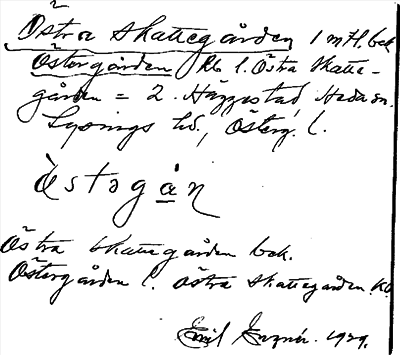 Östra Skattegården 1 mtl. bek
Östergården kb l. Östra Skatte-
gården = 2. Häggestad, Heda sn.
Lysings hd., Österg. l.
östɔgån
Östra Skattegården bek.
Östergården l. östra skattegården. Kb
Emil 1929.